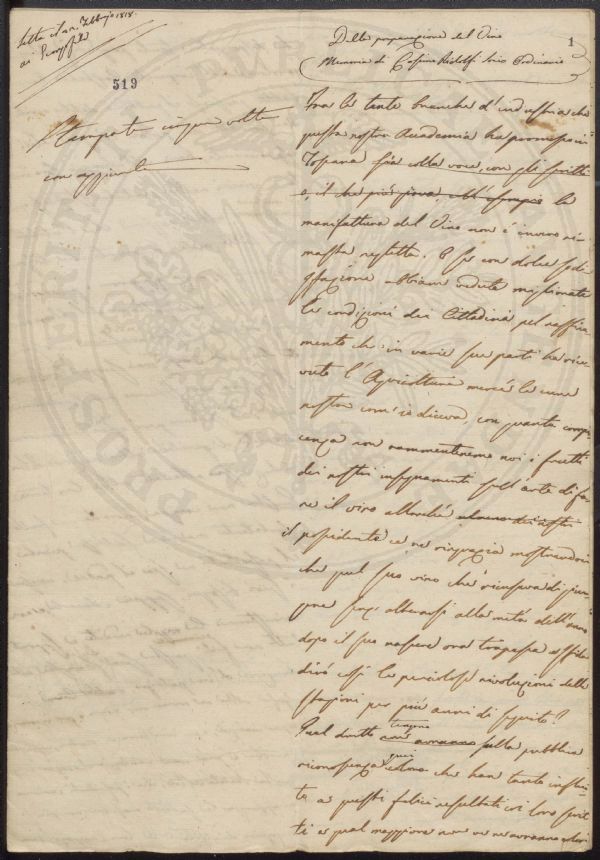 Letta il 1 Febbrajo 1818.
ai Georgofili
519
1
Stampata cinque volte
con aggiunte
Della preparazione del Vino
Memoria di Cosimo Ridolfi Socio Ordinario
Fra le tante branche d'industria che
questa nostra Accademia ha promosso in
Toscana sia colla voce, con gli scritti
e, il che più giova, coll'esempio la
manifattura del Vino non è invero ri-
masta negletta. E se con dolce sodi-
sfazione abbiam vedute migliorate
le condizioni dei Cittadini pel raffina-
mento che in varie sue parti ha rice-
vuto l'Agricoltura mercè le cure
nostre com'io diceva con quanta compia-
cenza non rammenteremo noi i frutti
dei nostri insegnamenti sull'arte di fa-
re il vino allorchè
il possidente ce ne ringrazia mostrandoci
che quel suo vino che ricusava di giun-
gere alla metà dell'anno
dopo il suo nascere ora trapassa
dirò così le pericolose rivoluzioni delle
stagioni per più anni di seguito?
Qual diritto
tengono
con avranno sulla pubblica
riconoscenza
quei
coloro che han tanto influi-
to a questi felici resultati coi loro scrit-
ti e qual maggiore non ne avranno